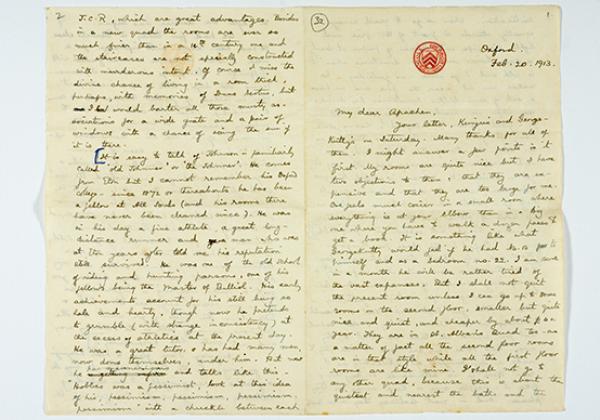 1.
Oxford.
Feb. 20. 1913.
My dear Apachen,
Your letter, Kunju's and George-
Kutty's on Saturday. Many thanks for all of
them. I might answer a few points in it
first. My rooms are quite nice but I have
two objections to them, that they are ex-
pensive and that they are too large for me.
One feels much cosier in a small room where
everything is at your elbow than in a big
one where you have to walk a dozen paces to
get a book. It is something like what
Georgekutty would feel if he had No. 10 to
himself and as a bedroom no. 22. I am sure
in a month he will be rather tired of
the vast expanses. But I shall not quit
the present room unless I can go up to some
rooms on the second floor, smaller but quite
nice and quiet, and cheaper by about £ a
year. They are in
matter of fact all the second floor rooms
are in that style while all the first floor
rooms are like mine. I shall not go to
any other quad, because this is about the
quietest and nearest the baths and the
3a
2
J.C.R, which are great advantages. Besides
in a new quad the rooms are ever so
much finer than in a 16th century one and
the staircases are not specially constructed
with murderous intent. Of course I miss the
divine chance of living in a room thick,
perhaps, with memories of Duns Scotus, but
I would barter all those musty as-
sociations for a wide grate and a pair of
windows with a chance of seeing the sun if
it is there.
[It is easy to tell of Johnson - familiarly
called "old Johnner" or "the Johnner". He comes
from Eton but I cannot remember his Oxford
College - since 1872 or thereabouts he has been
a fellow at All Souls (and his rooms there
have never been cleaned since). He was
in his day a fine athlete, a great long-
distance runner and man who was
at ten years after told me his reputation
still survived. He was one of the old school
of riding and hunting parsons, one of his
fellows being the Master of Balliol. His early
achievements account for his still being so
hale and hearty, though now he pretends
to grumble (with strange inconsistency) at
the excess of athletics at the present day.
He was a great tutor, & has had many men,
now dons themselves, under him. But now
he and talks like this -
"Hobbes was a pessimist, look at this idea
of his, pessimism, pessimism, pessimism,
pessimism" with a chuckle between each